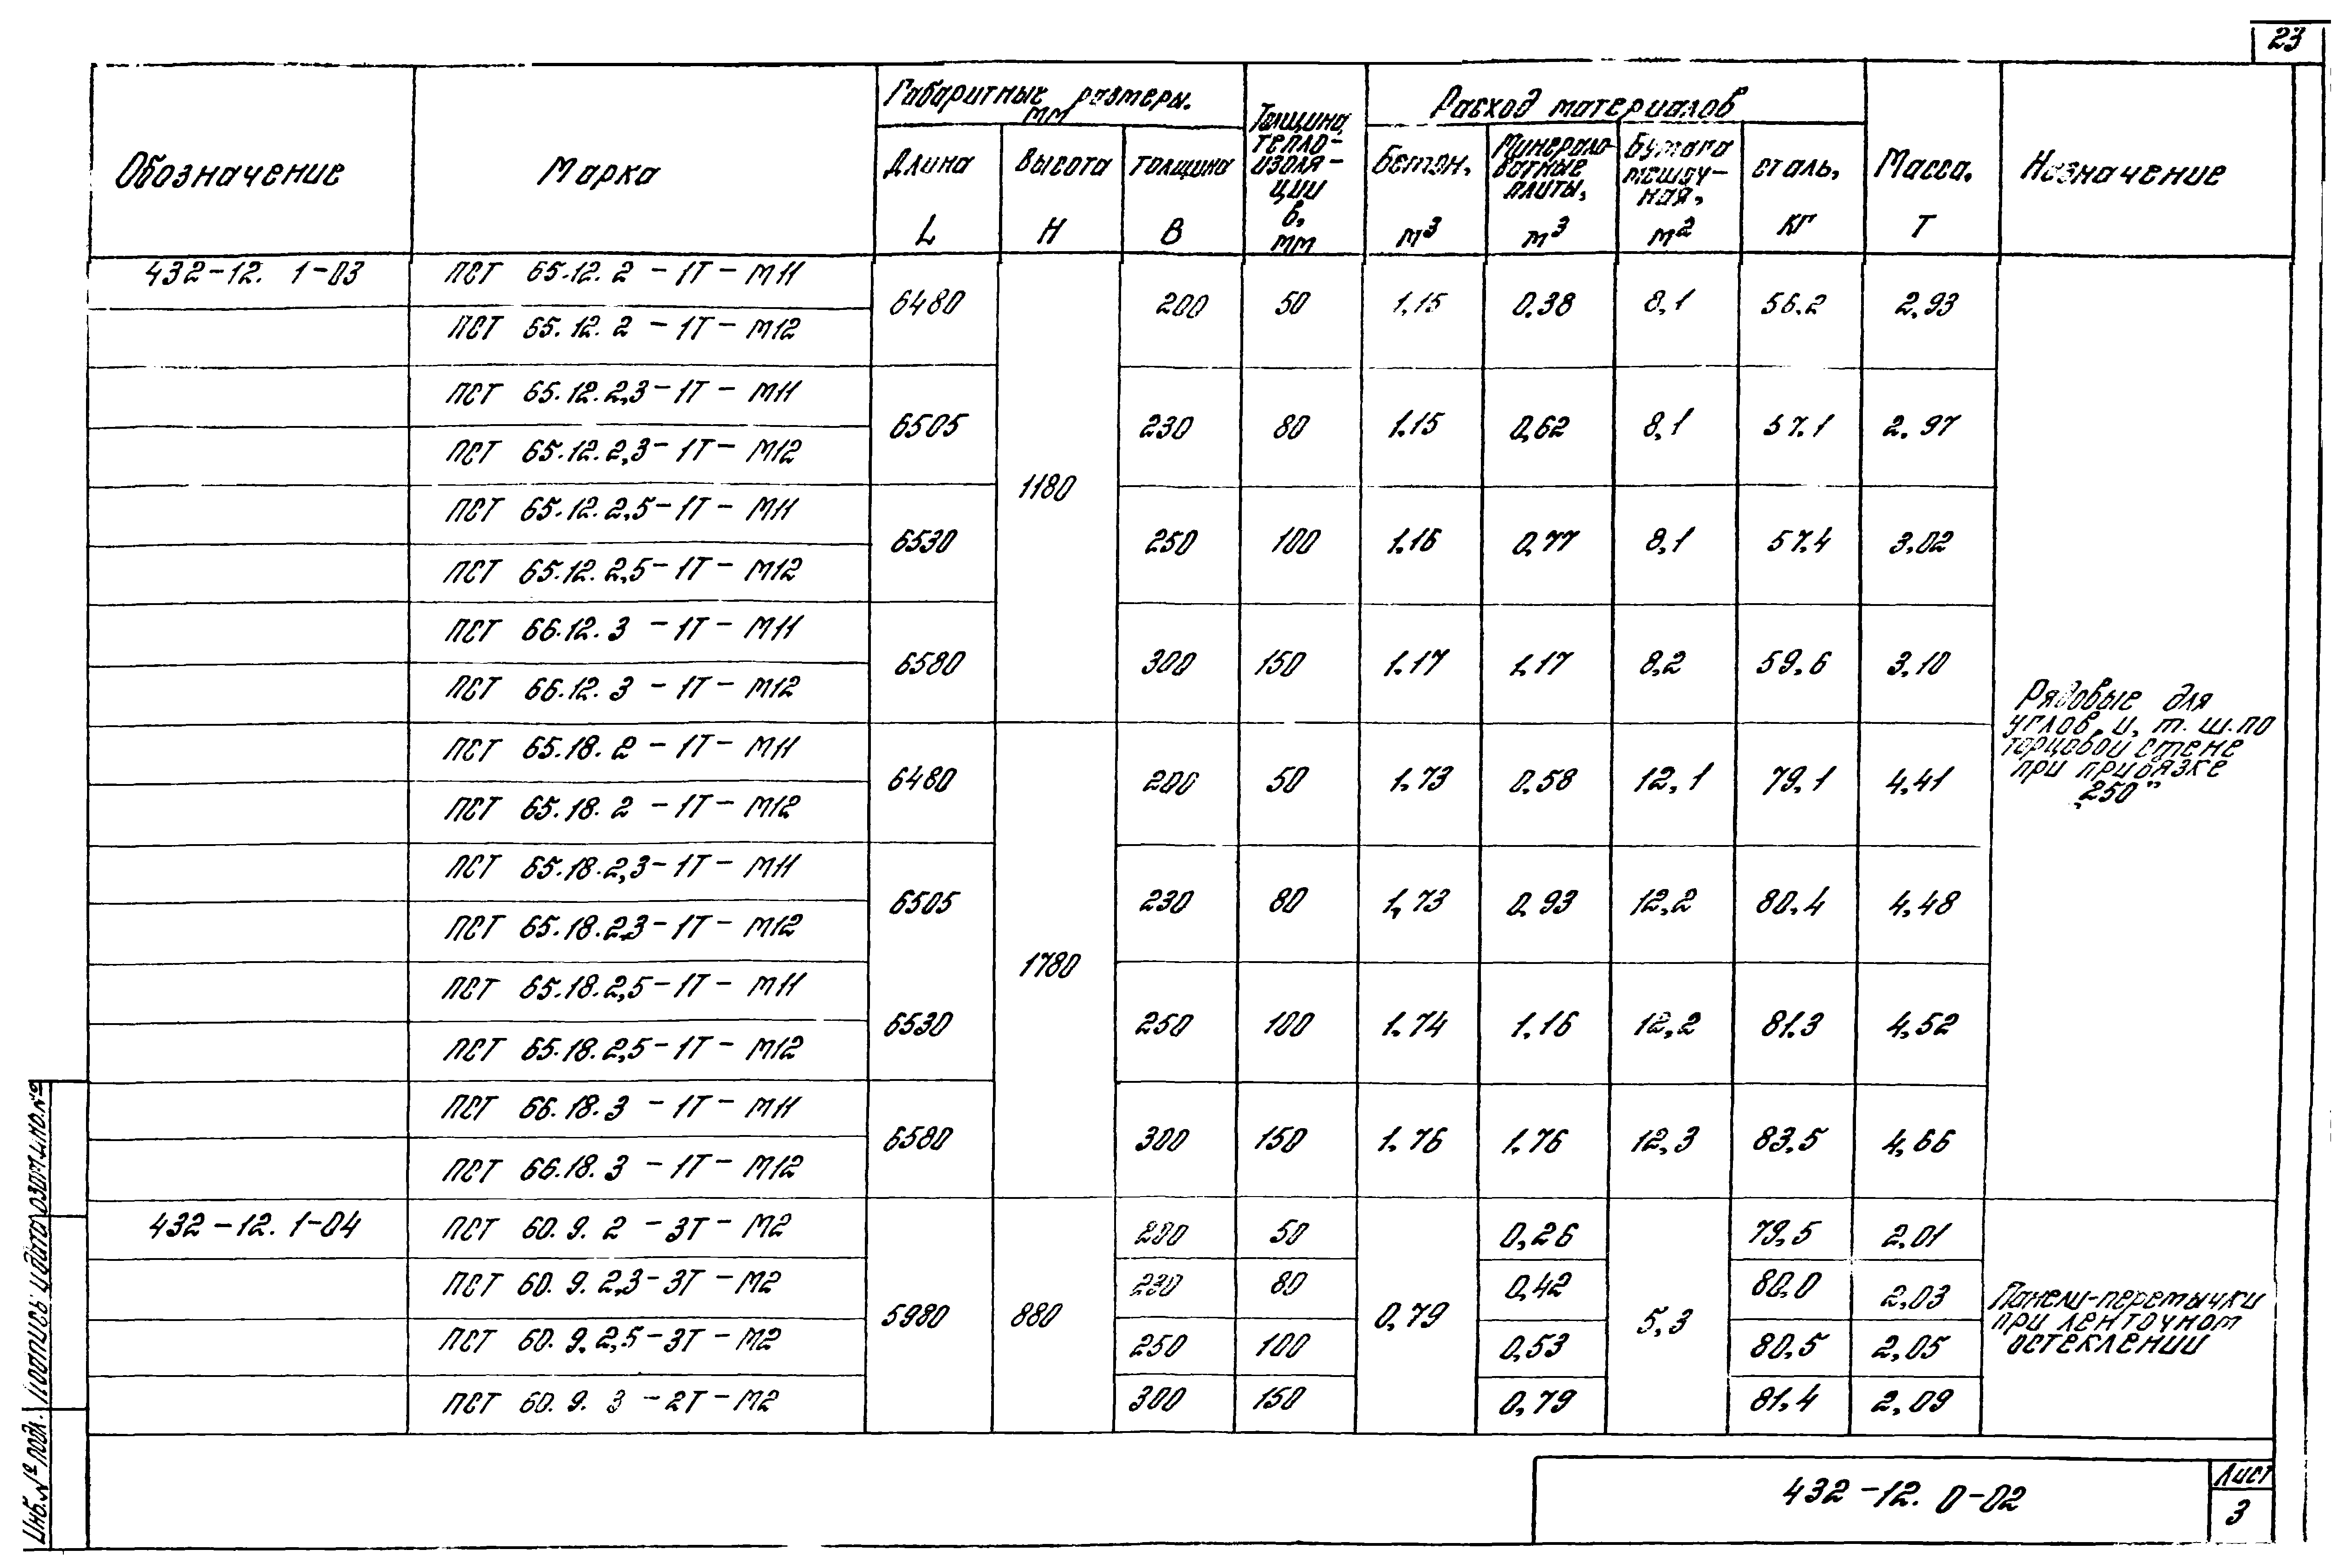 23
Обозначение Марка Габаритные размеры, мм Толщина теплоизоляции в, мм Расход материалов Масса, Т Назначение
Длина L Высота Н толщина В Бетон, м³ Минераловатные плиты, м³ Бумага мешочная, м² сталь, кг
432-12. 1-03 ПСТ 65.12.2 - 1Т - М11 6480 1180 200 50 1,15 0,38 8,1 56.2 2,93
ПСТ 65.12.2 - 1Т - М12
ПСТ 65.12.2,3 - 1Т - М11 6505 230 80 1.15 0,62 8,1 57.1 2.97
ПСТ 65.12.2,3 - 1Т - М12
ПСТ 65.12.2,5 - 1Т - М11 6530 250 100 1.16 0,77 8,1 57.4 3.02
ПСТ 65.12.2,5 - 1Т - М12
ПСТ 66.12.3 - 1Т - М11 6580 300 150 1.17 1.17 8,2 59.6 3.10
ПСТ 66.12.3 - 1Т - М12
Рядовые для
углов и т. ш. по
торцовой стене
при привязке
„250"
ПСТ 65.18.2 - 1Т - М11 6480 1780 200 50 1.73 0.58 12,1 79,1 4,41
ПСТ 65.18.2 - 1Т - М12
ПСТ 65.18.2,3 - 1Т - М11 6505 230 80 1,73 0.93 12,2 80.4 4,48
ПСТ 65.18.2,3 - 1Т - М12
ПСТ 65.18.2,5 - 1Т - М11 6530 250 100 1.74 1.16 12,2 81.3 4,52
ПСТ 65.18.2,5 - 1Т - М12
ПСТ 66.18.3 - 1Т - М11 6580 300 150 1.76 1.76 12,3 83,5 4,66
ПСТ 66.18.3 - 1Т - М12
432-12. 1-04 ПСТ 60.9.2 - 3Т - М2 5980 880 200 50 0,79 0,26 5,3 79,5 2,01
ПСТ 60.9.2,3 - 3Т - М2 230 80 0,42 80,0 2,03
ПСТ 60.9.2,5 - 3Т - М2 250 100 0,53 80,5 2,05
ПСТ 60.9.3 - 2Т - М2 300 150 0,79 81,4 2,09
Панели-перемычки
при ленточном
остеклении
432-12. 0-02
Лист
3
Инв. № подл. Подпись и дата